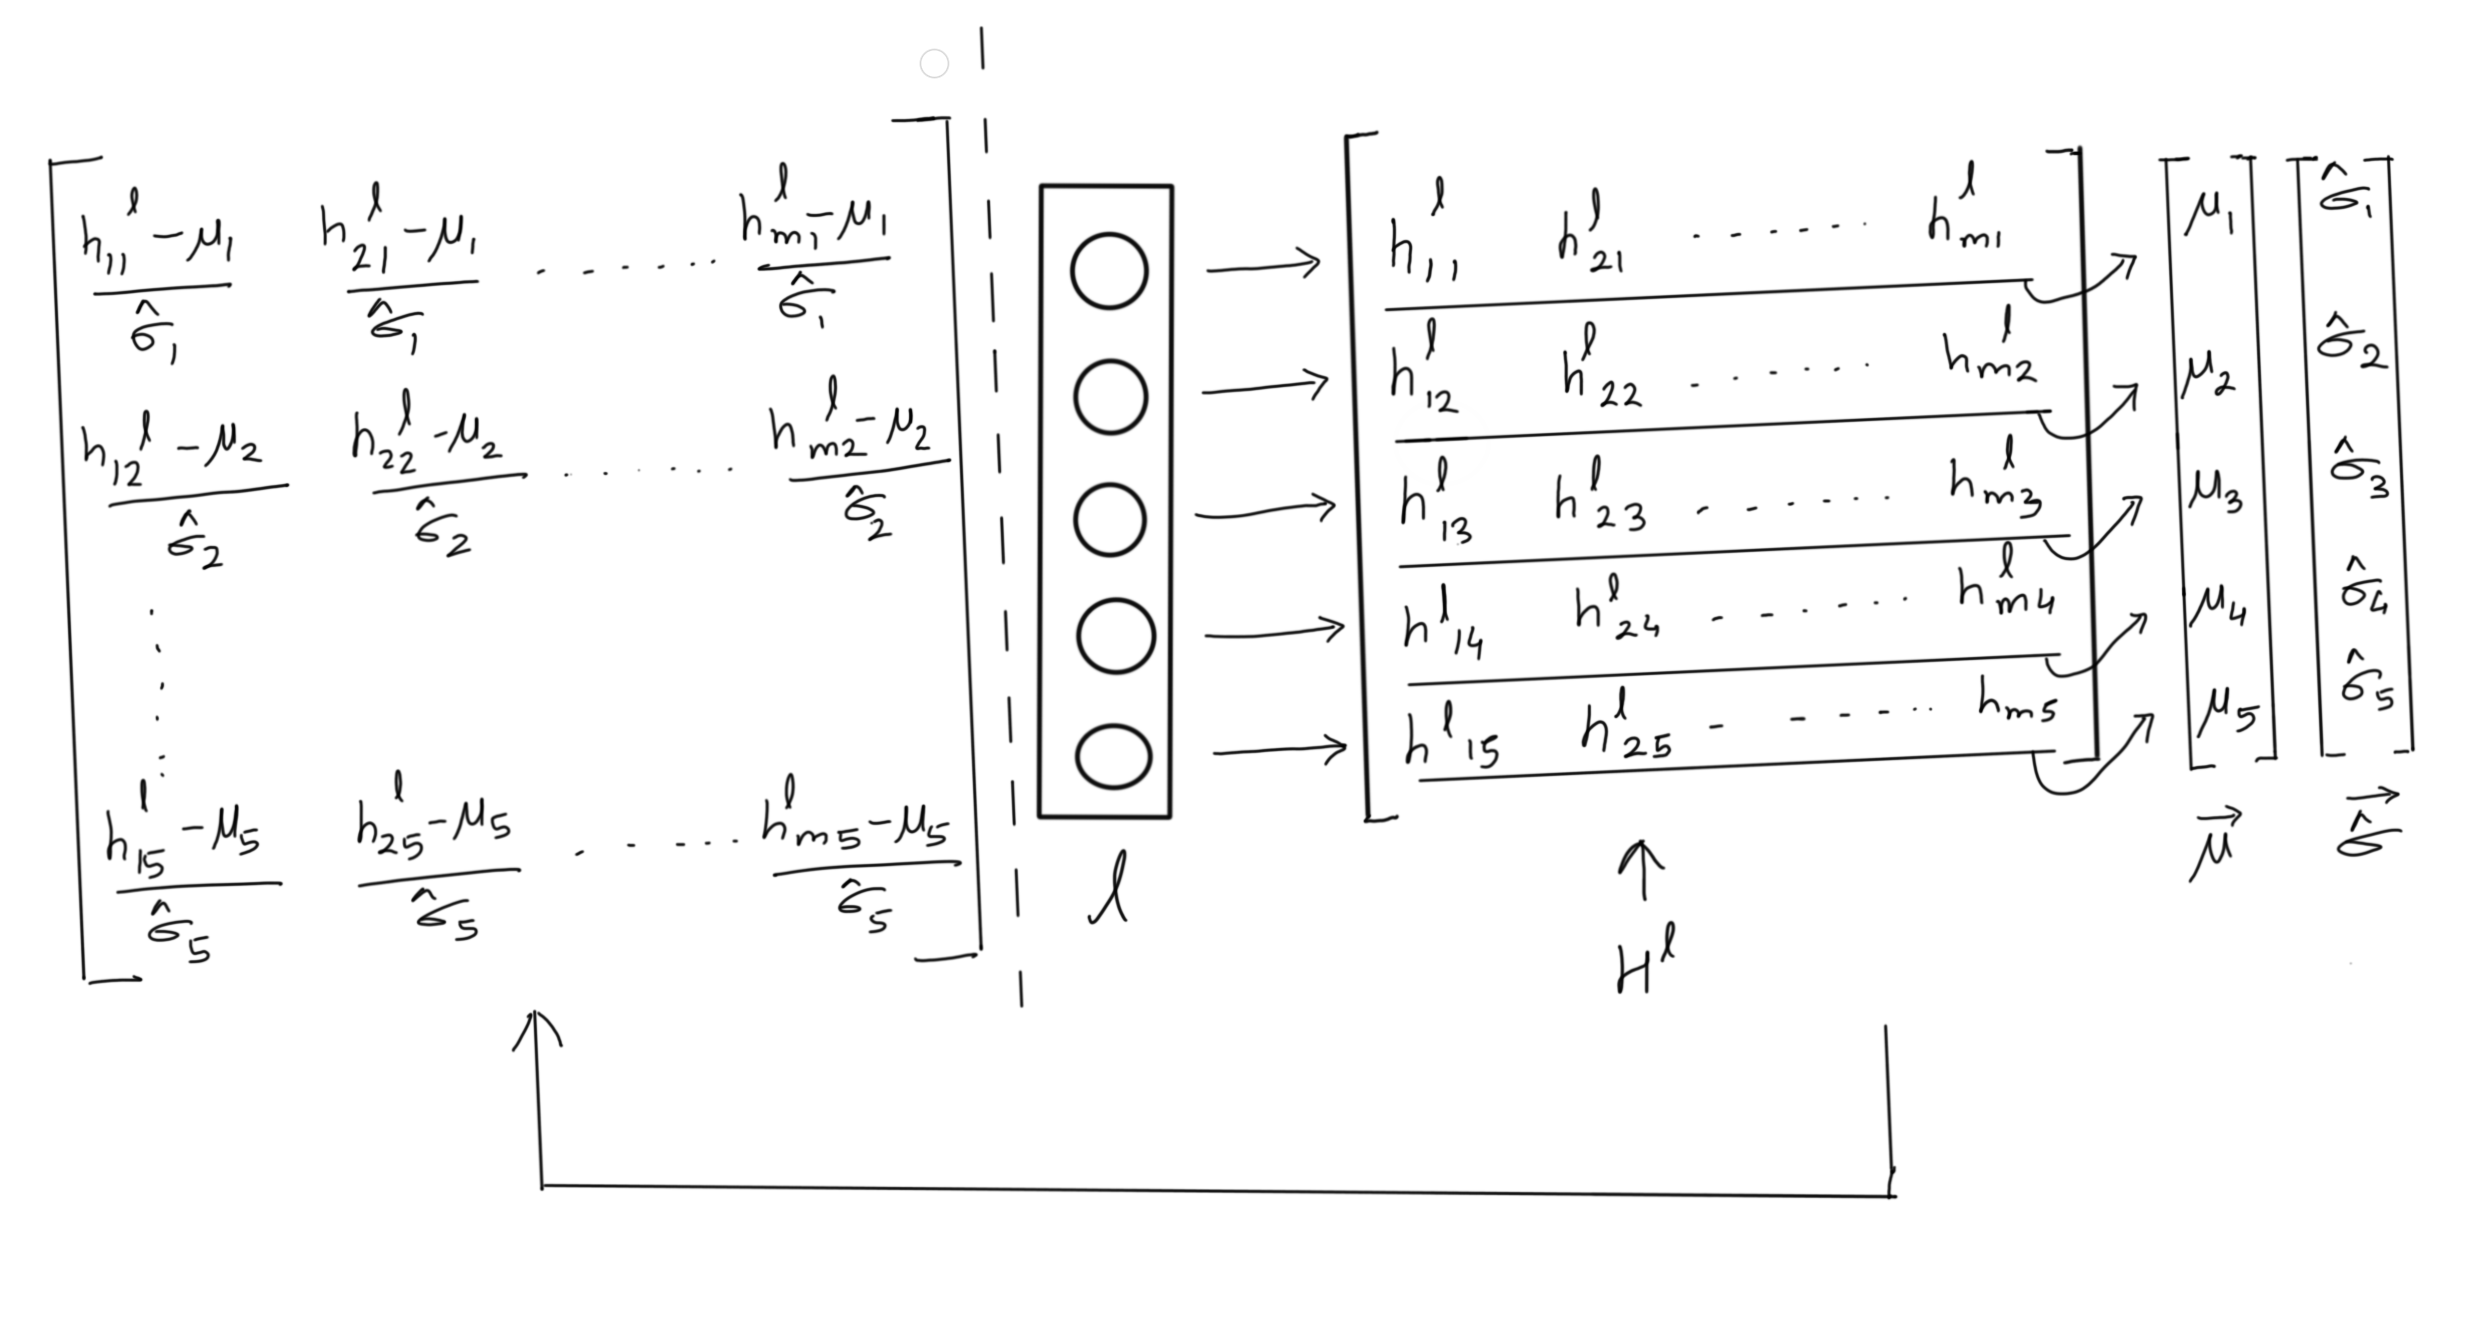 (h₁₁ˡ − μ₁)/σ̂₁ (h₂₁ˡ − μ₁)/σ̂₁ ....... (hₘ₁ˡ − μ₁)/σ̂₁
(h₁₂ˡ − μ₂)/σ̂₂ (h₂₂ˡ − μ₂)/σ̂₂ ....... (hₘ₂ˡ − μ₂)/σ̂₂
(h₁₅ˡ − μ₅)/σ̂₅ (h₂₅ˡ − μ₅)/σ̂₅ ...... (hₘ₅ˡ − μ₅)/σ̂₅
l
h₁₁ˡ h₂₁ˡ ...... hₘ₁ˡ
h₁₂ˡ h₂₂ˡ ...... hₘ₂ˡ
h₁₃ˡ h₂₃ˡ ...... hₘ₃ˡ
h₁₄ˡ h₂₄ˡ ...... hₘ₄ˡ
h₁₅ˡ h₂₅ˡ ...... hₘ₅
Hˡ
μ₁ σ̂₁
μ₂ σ̂₂
μ₃ σ̂₃
μ₄ σ̂₄
μ₅ σ̂₅
μ⃗ σ̂⃗